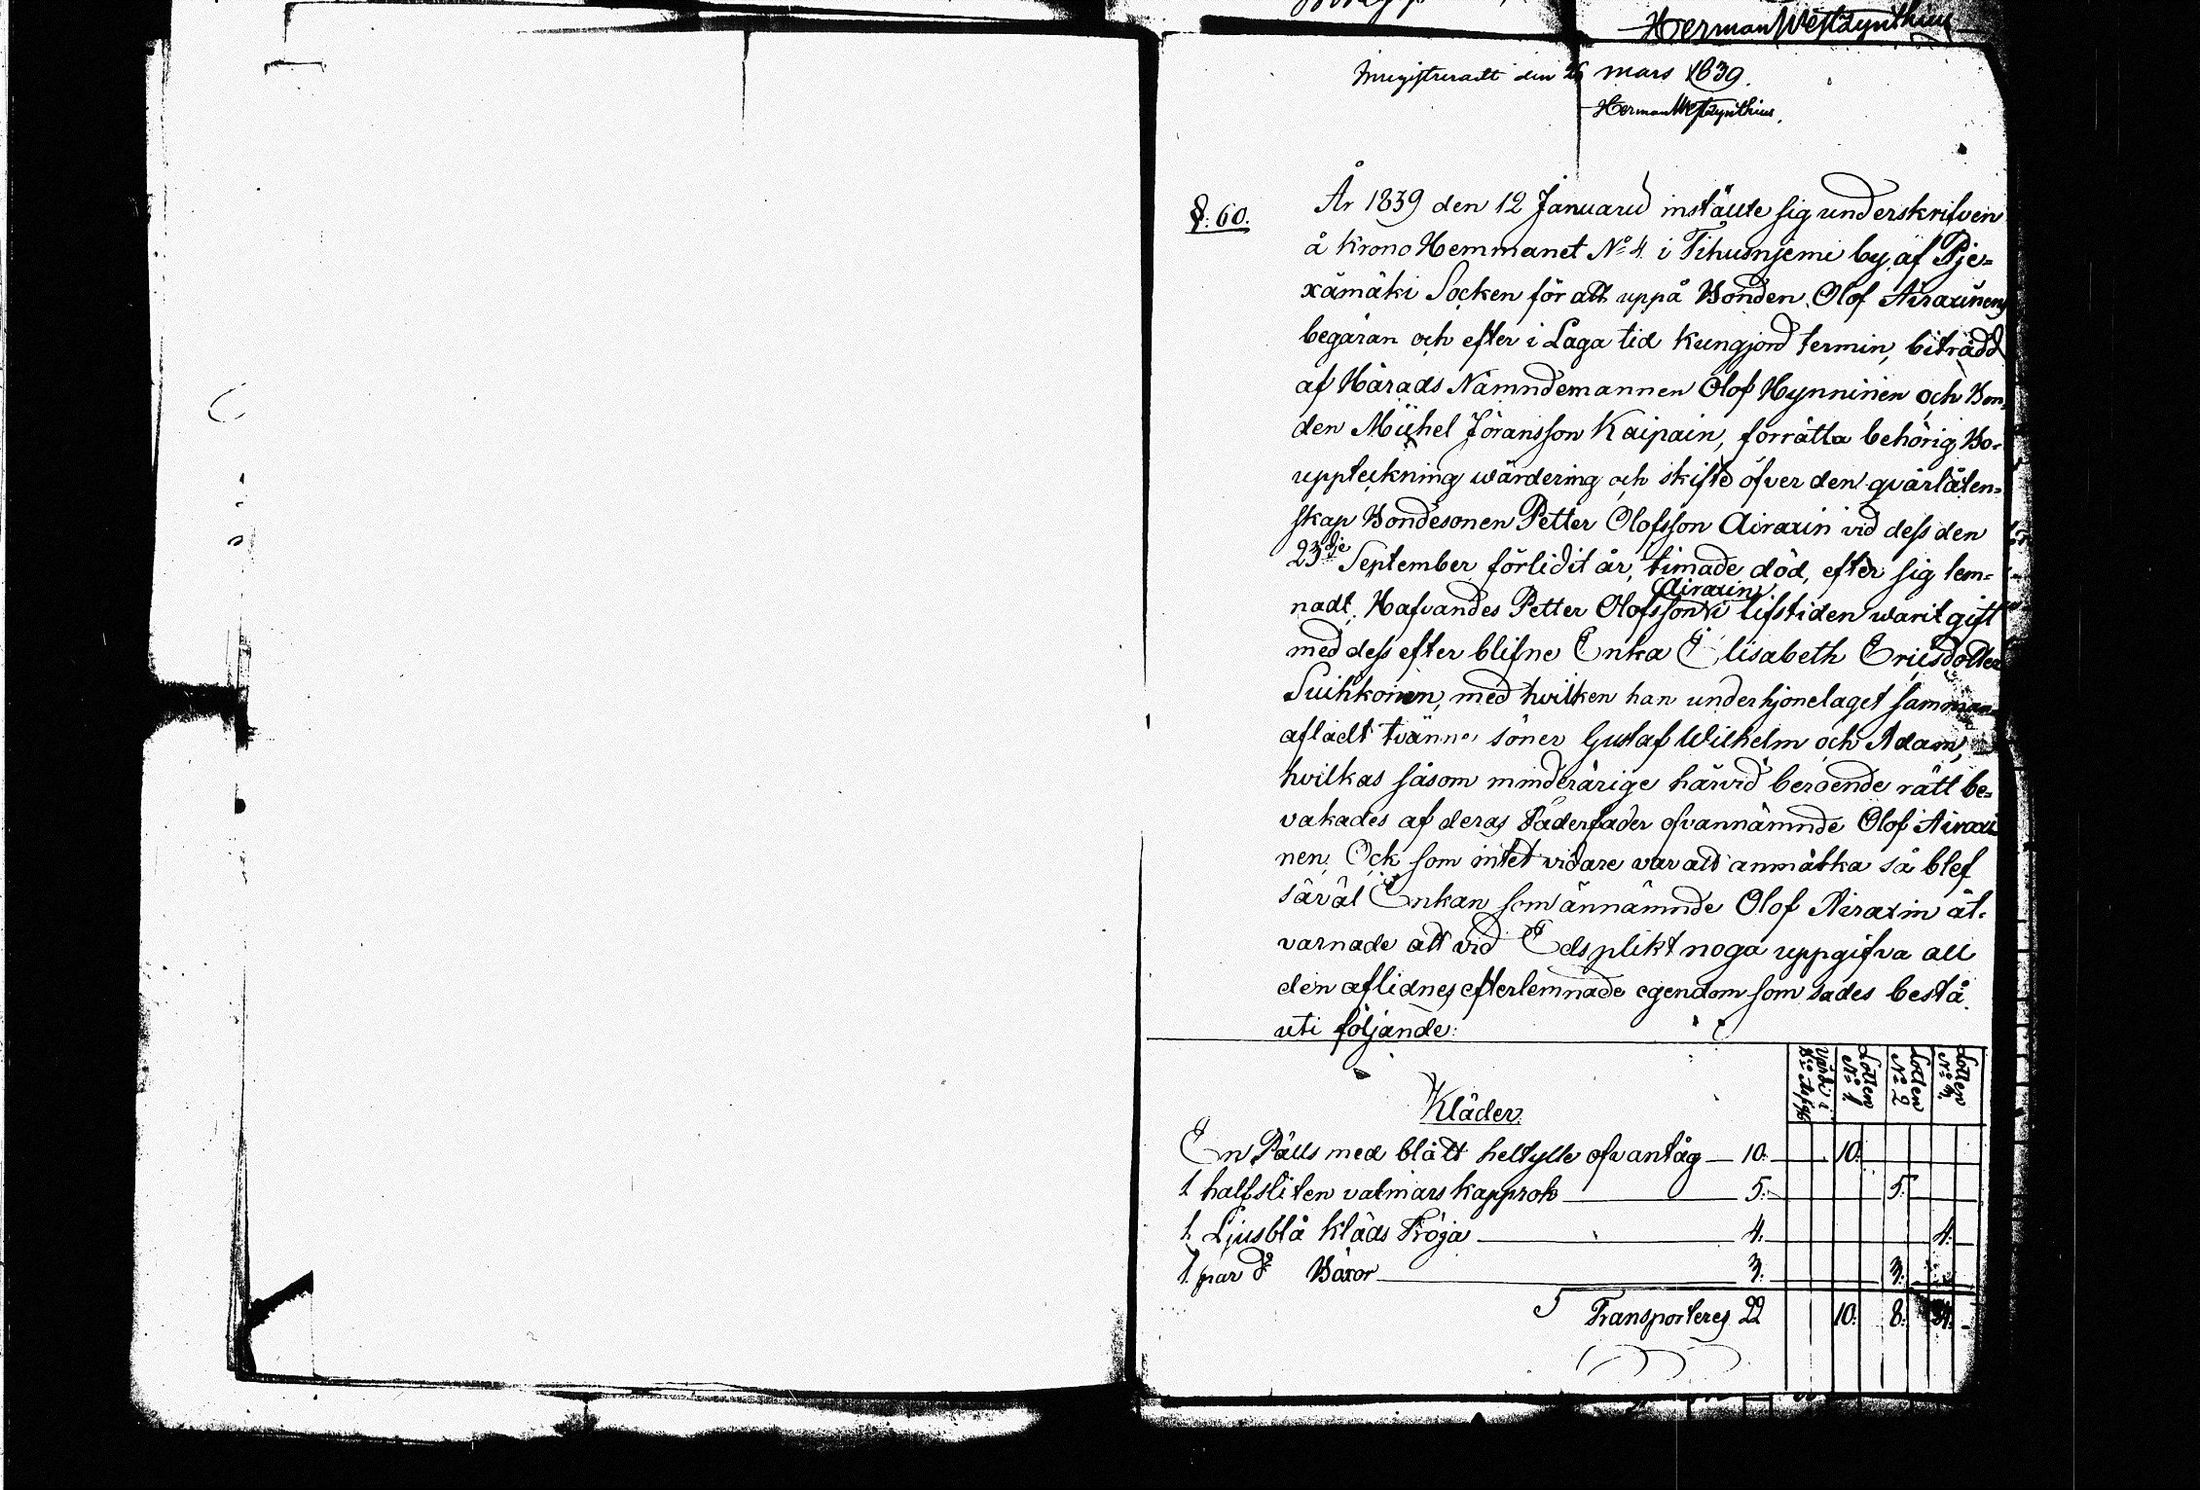 Herman Westzynthius
Inregistreradt den 26 mars 1839.
Herman Westzynthius.
§. 60.
År 1839 den 12 Januarii instälte sig underskrifven
å Krono Hemmanet No 4 i Tihusnjemi by af Pje-
xämäki Socken för att uppå Bonden Olof Airaxinens
begäran och efter i Laga tid kungjord termin, biträdd
af Härads Nämndemannen Olof Hynninen och Bon-
den Michel Jöransson Kaipain, förrätta behörig Bo-
uppteckning wärdering och skifte öfver den qvarlåten-
skap Bondesonen Petter Olofsson Airaxin vid dess den
23dje September förlidit år, timade död, efter sig lem-
nadt. Hafvandes Petter Olofsson Airaxin i lifstiden warit gift
med dess efter blifne Enka Elisabeth Ericsdotter
Suihkoinen, med hvilken han under hjonelaget samman-
afladt tvänne söner Gustaf Wilhelm och Adam,
hvilkas såsom minderårige härvid beroende rätt be-
vakades af deras Faderfader ofvannämnde Olof Airaxi
nen. Ock som intet vidare var att anmärka så blef
såväl Enkan som ännämnde Olof Airaxin åt-
varnade att vid Edsplikt noga uppgifva all
den aflidnes efterlemnade egendom som sades bestå
uti följande:
Lotten No 1. Lotten No 2 Lotten No 3.
Kläder
En Pälls med blått heltylle ofvantåg 10. 10.
1 halfsliten valmars kapprok 5. 5.
1. Ljusblå kläds Tröja 4. 4.
1. par do Böxor 3. 3.
Transporteres 22 10. 8. 4.